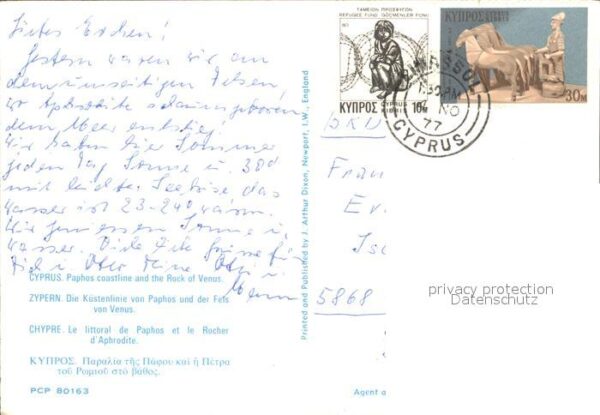 Liebes Evchen!
Gestern waren wir am
Felsen,
wo Aphrodite schaumgeboren
dem Meer entstieg!
Wir haben hier Sommer
jeden Tag Sonne u. 30°
mit leichter Seebrise das
Wasser ist 23-24° warm.
Wir Sonne u.
Wasser. Viele Grüsse für
Dich u.
CYPRUS. Paphos coastline and the Rock of Venus.
ZYPERN. Die Küstenlinie von Paphos und der Fels
von Venus.
CHYPRE. Le littoral de Paphos et le Rocher
d'Aphrodite.
ΚΥΠΡΟΣ. Παραλία τῆς Πάφου καὶ ἡ Πέτρα
τοῦ Ρωμιοῦ στὸ βάθος.
PCP 80163
Printed and Published by J. Arthur Dixon, Newport, I.W., England
ΤΑΜΕΙΟΝ ΠΡΟΣΦΥΓΩΝ
REFUGEE FUND GÖÇMENLER FONU
ΚΥΠΡΟΣ CYPRUS KIBRIS 10
ΚΥΠΡΟΣ CYPRUS KIBRIS
30M
LIMASSOL
NO
77
CYPRUS
Frau
Ev
Ise
5868
Agent
privacy protection
Datenschutz